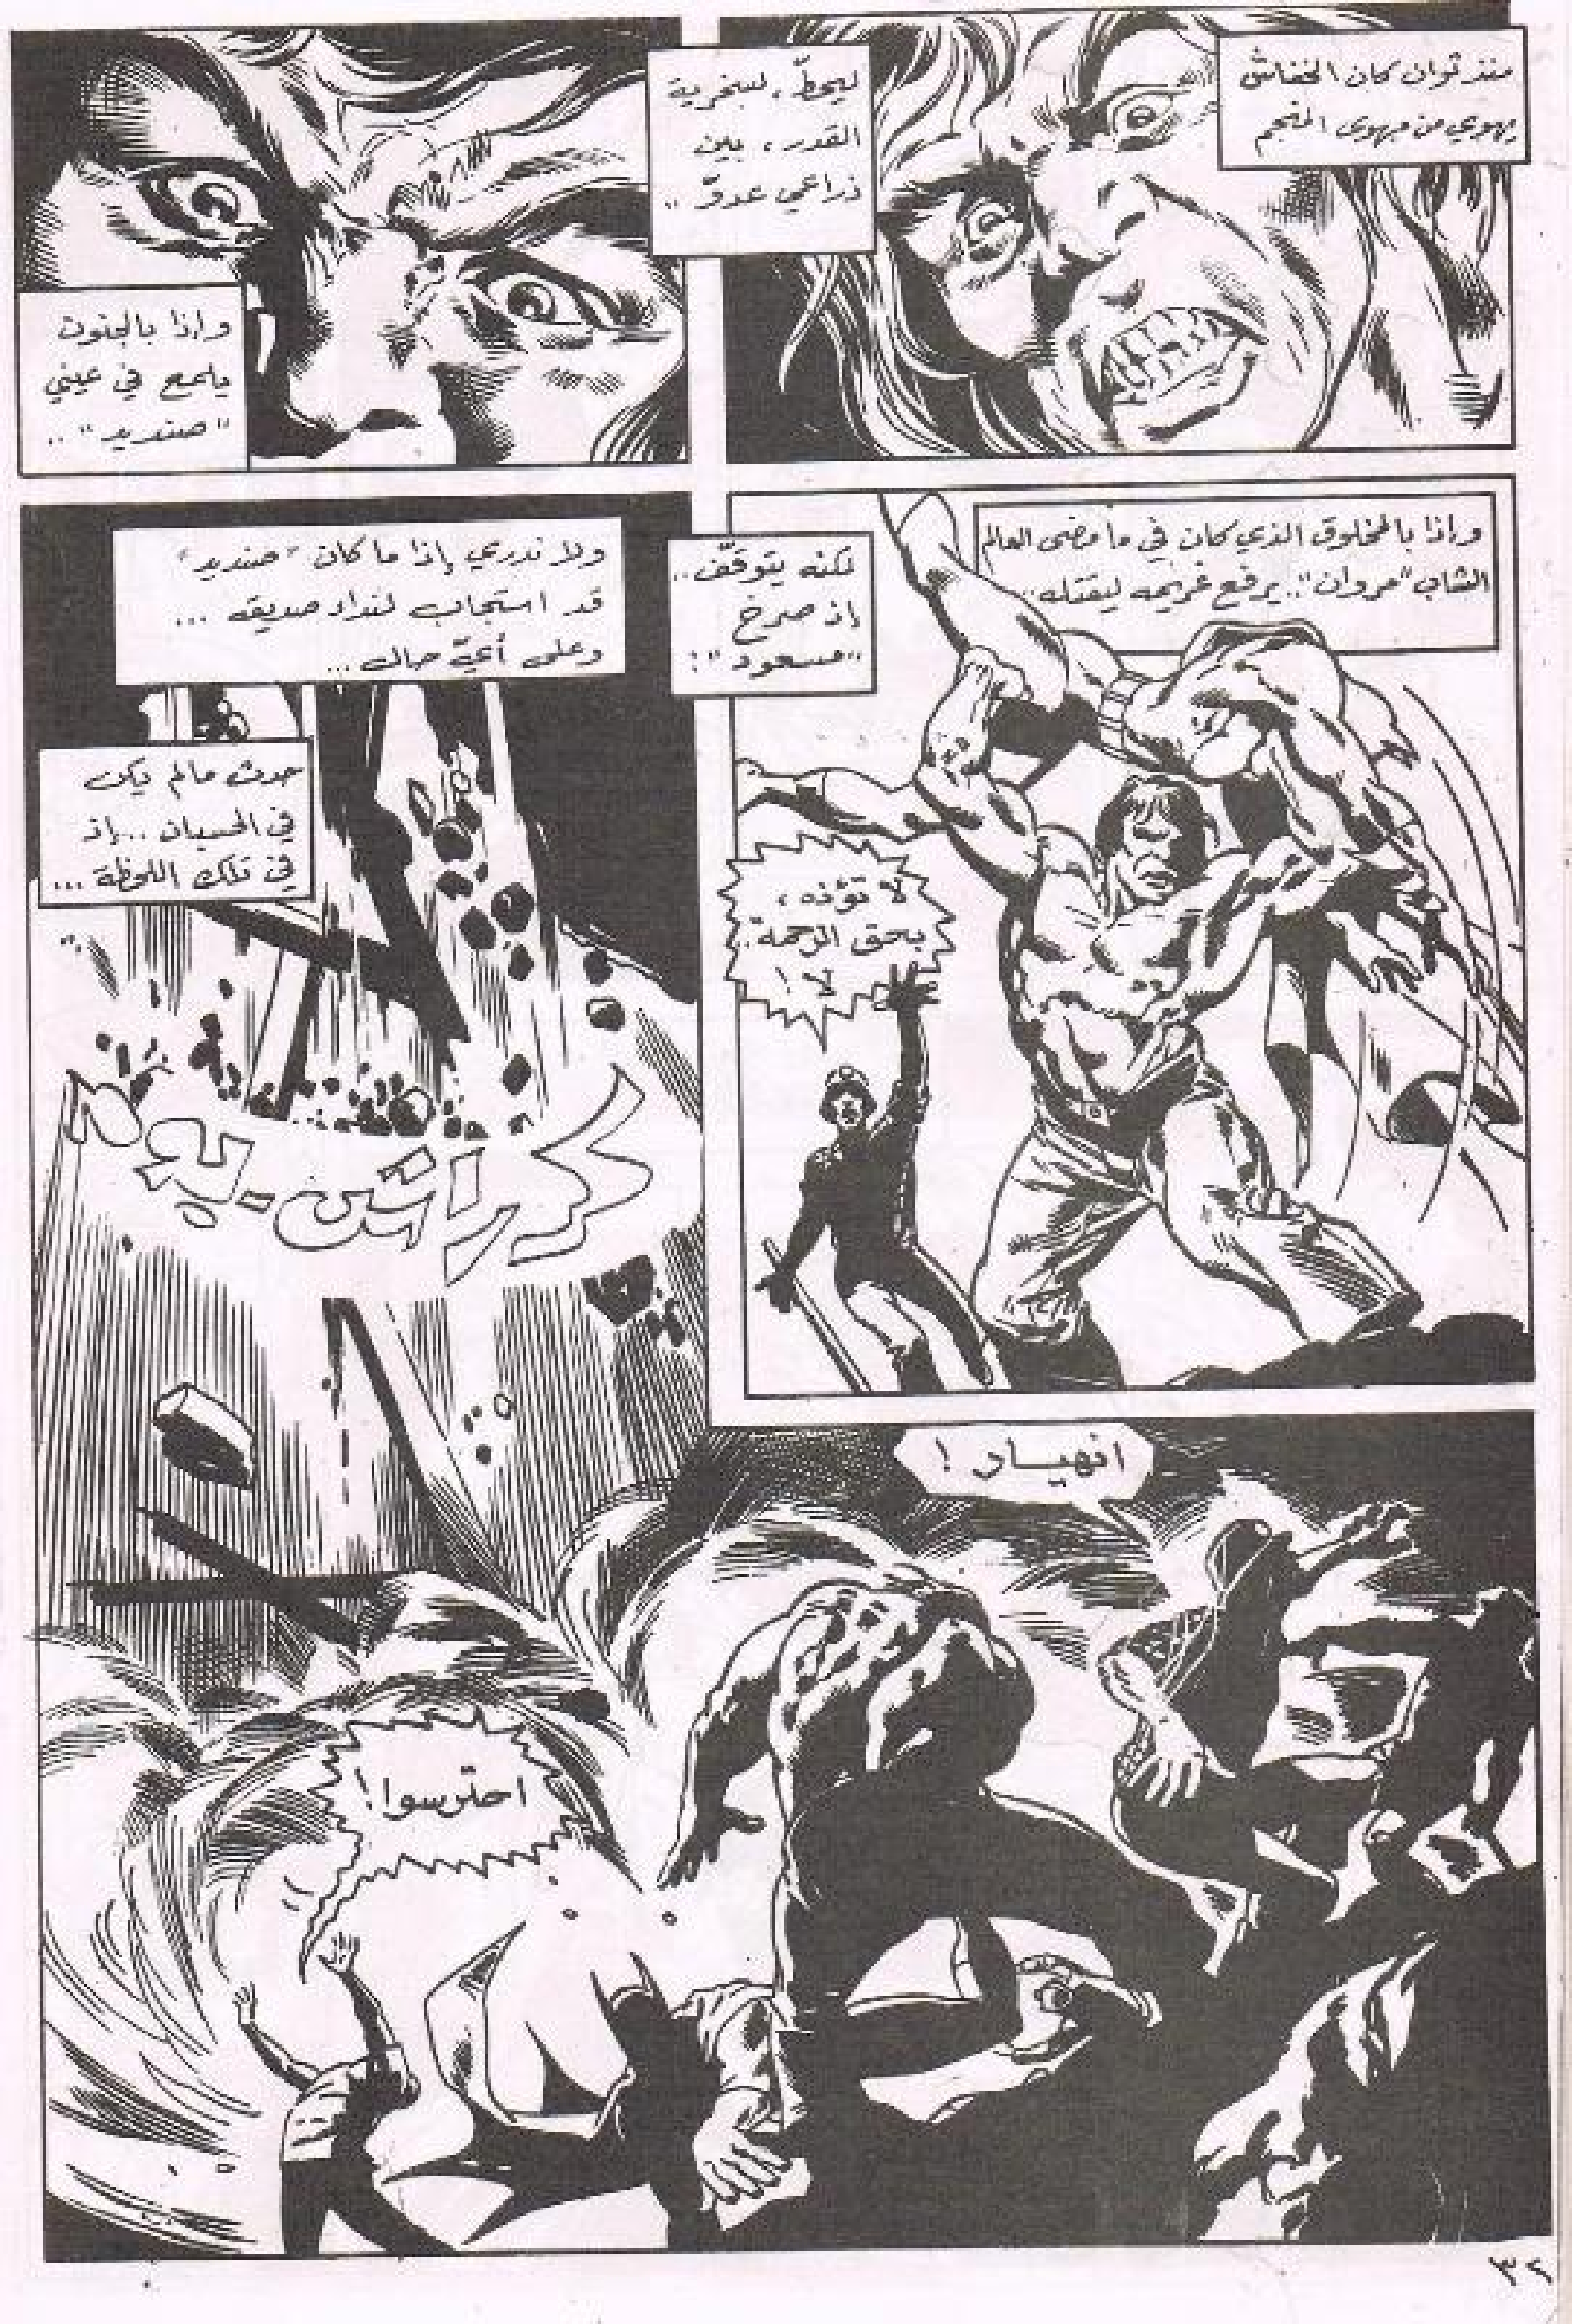 منذ ثوان كان الخفاش
يهوي من مهوى المنجم
ليحطّ، لسخرية
القدر، بين
ذراعي عدوّ ..
وإذا بالجنون
يلمع في عيني
"صنديد" ..
وإذا بالمخلوق الذي كان في ما مضى العالم
الشاب "مروان".. يرفع غريمه ليقتله..
لكنه يتوقّف..
إذ صرخ
"مسعود":
لا تؤذه،
بحق الرحمة..
لا!
ولا ندري إذا ما كان "صنديد"
قد استجاب لنداء صديقه ...
وعلى أيّ حال ...
حدث مالم يكن
في الحسبان ...إذ
في تلك اللحظة ...
كراتش-بوم
انهيار!
احترسوا!
٣٢